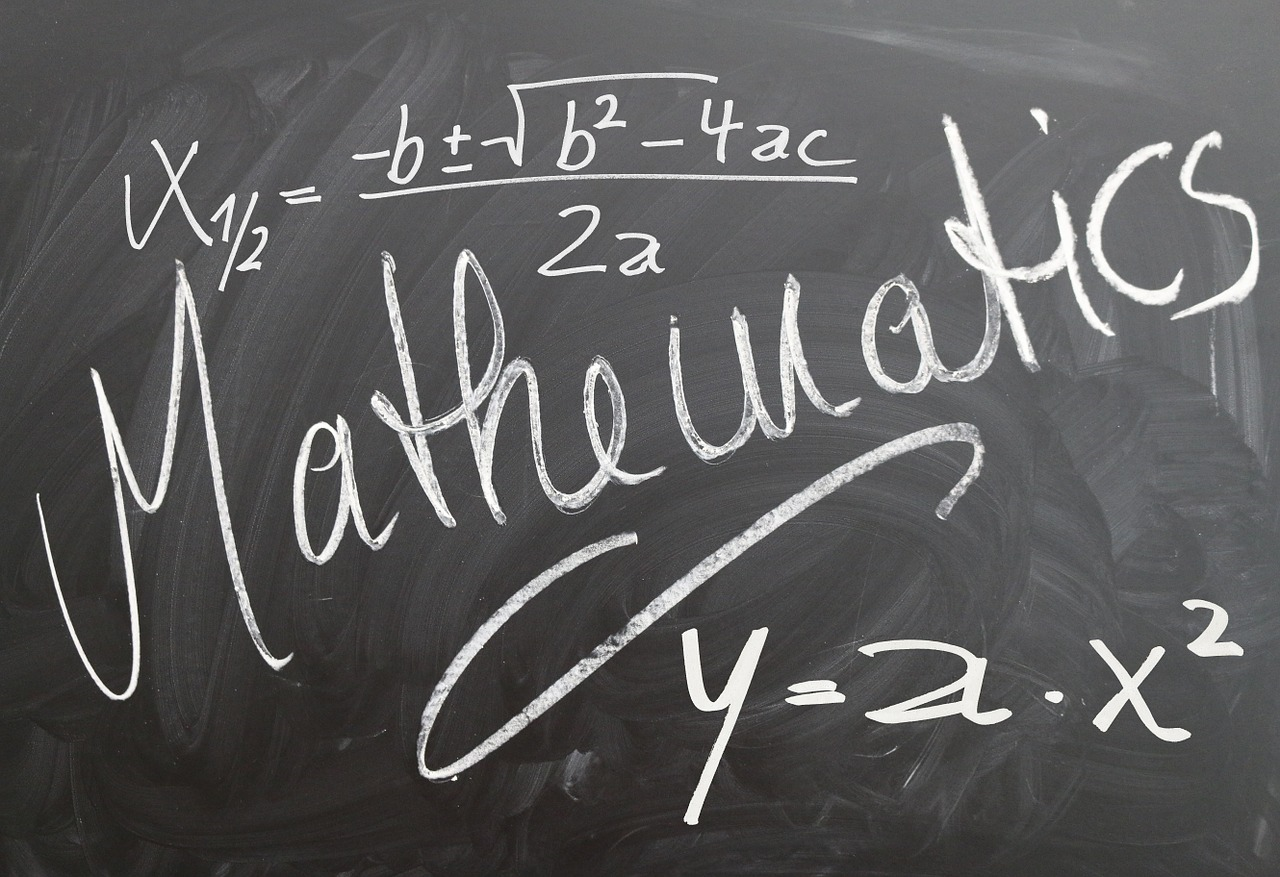 x₁/₂ = (-b ± √(b² - 4ac)) / 2a
Mathematics
y = a · x²